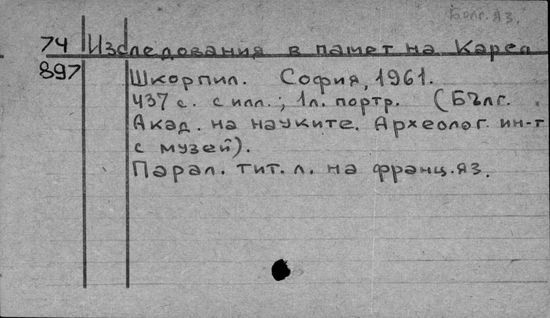 Болг. яз.
74 Изследования в памет на Карел
897 Шкорпил. София, 1961.
437 с. с илл.; 1 л. портр. (Бълг.
Акад. на науките. Археолог. ин-т
с музей).
Парал. тит. л. на франц. яз.